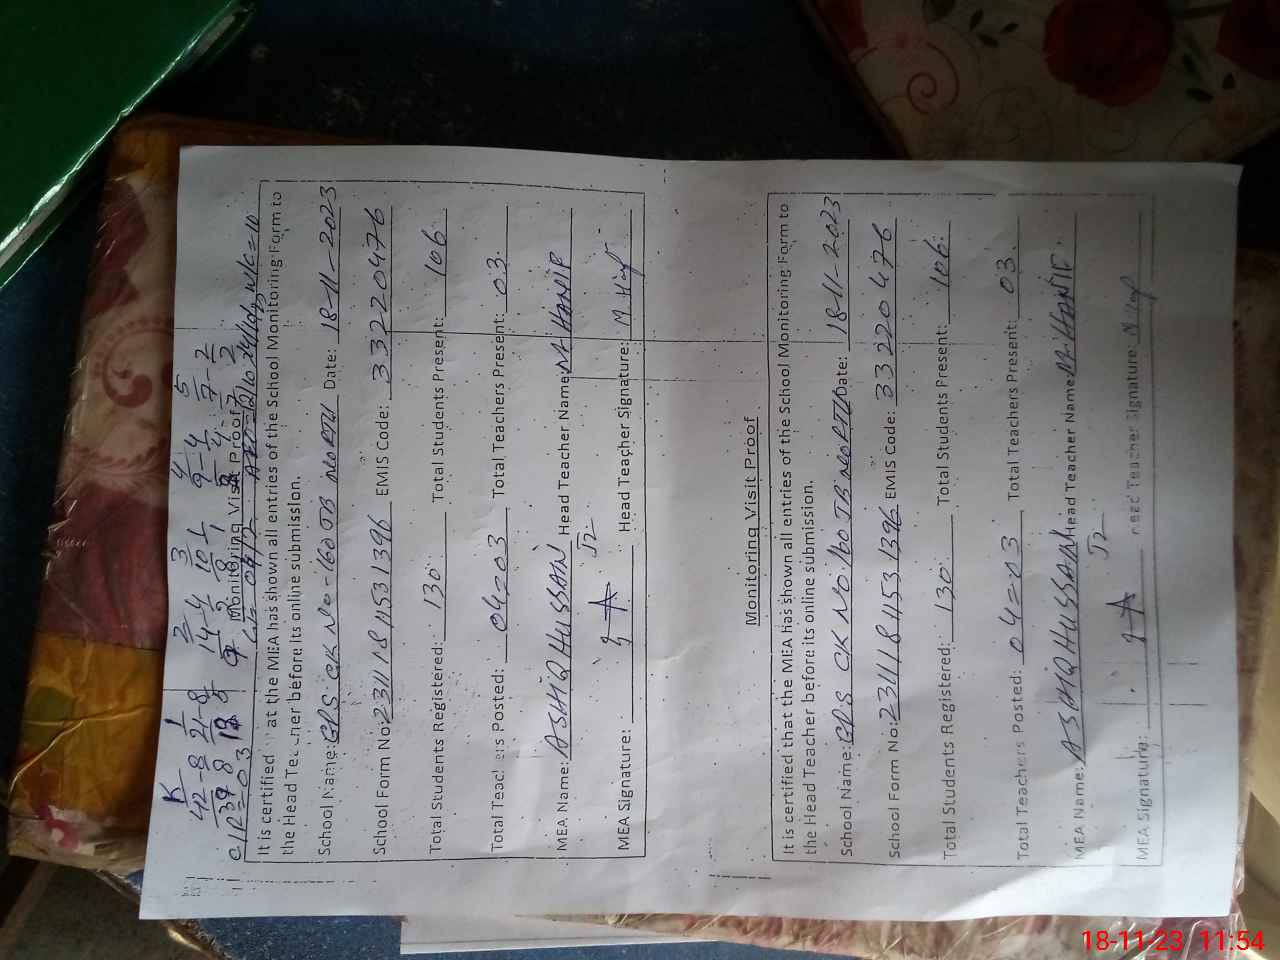 K 1 2 3 4 5
42-8 21-8 14-4 10-1 9-4 7-2
Monitoring Visit Proof
It is certified at the MEA has shown all entries of the School Monitoring Form to
the Head Teacher before its online submission.
School Name: GPS CK No-160 JB NORTH Date: 18-11-2023
School Form No: 23111811531396 EMIS Code: 33220476
Total Students Registered: 130 Total Students Present: 106
Total Teachers Posted: 04=03 Total Teachers Present: 03.
MEA Name: ASHIQ HUSSAIN Head Teacher Name: M. HANIF
MEA Signature: Head Teacher Signature: M. Hanif
Monitoring Visit Proof
It is certified that the MEA has shown all entries of the School Monitoring Form to
the Head Teacher before its online submission.
School Name: GPS CK No. 160 JB NORTH Date: 18-11-2023
School Form No: 23111811531396 EMIS Code: 33220476
Total Students Registered: 130 Total Students Present: 106
Total Teachers Posted: 04=03 Total Teachers Present: 03.
MEA Name: ASHIQ HUSSAIN Head Teacher Name: M. HANIF
MEA Signature: Head Teacher Signature:
18-11-23 11:54